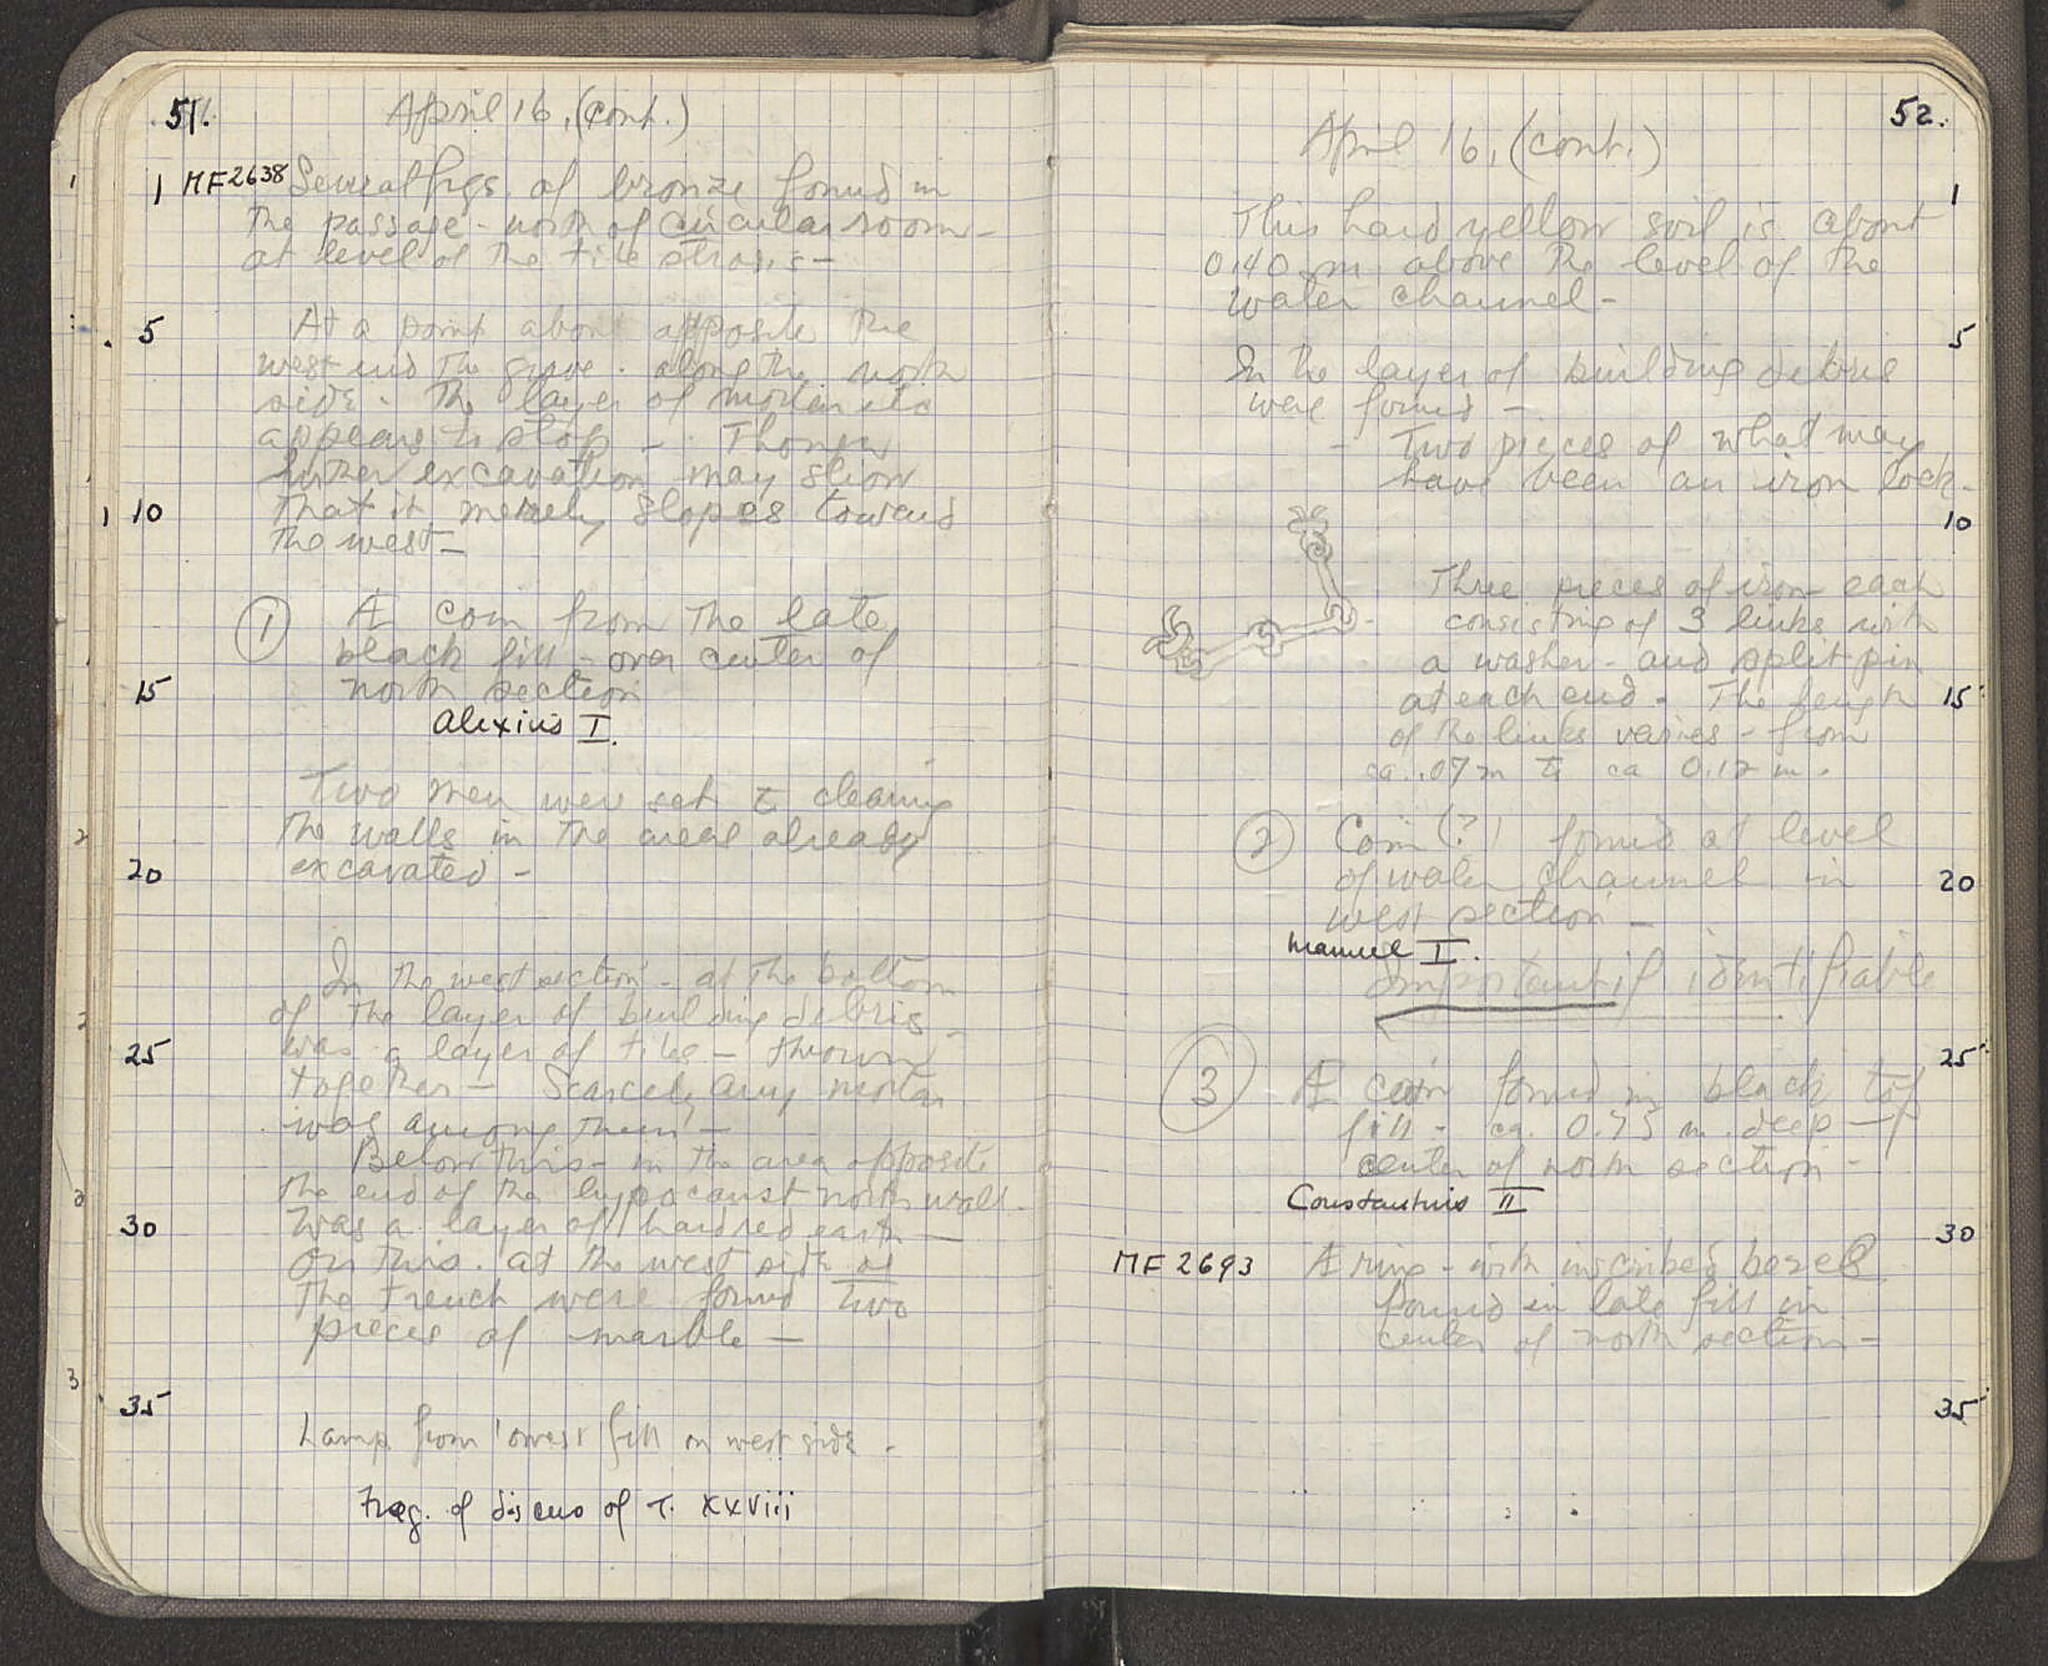 51.
April 16, (cont.)
1 MF2638 Several frgs. of bronze found in
the passage - north of circular room -
at level of the tile strosis -
5 At a point about opposite the
west end the grave - along the north
side - The layer of mortar etc
appears to stop - Though
further excavation may show
10 that it merely slopes toward
the west -
① A coin from the late
black fill - over center of
15 north section
Alexius I.
Two men were set to cleaning
the walls in the areas already
20 excavated -
In the west section - at the bottom
of the layer of building debris -
25 was a layer of tiles - thrown
together - Scarcely any mortar
was among them -
Below this - in the area opposite
the end of the hypocaust north wall -
30 was a layer of hard red earth -
On this - at the west side of
the trench were found two
pieces of marble -
35
Lamp from lowest fill on west side -
Frag. of discus of T. XXVIII
52.
April 16, (cont.)
1
This hard yellow soil is about
0.40 m above the level of the
water channel -
5
In the layer of building debris
were found -
- Two pieces of what may
have been an iron lock -
10
Three pieces of iron - each
consisting of 3 links with
a washer - and split pin
at each end - The length 15
of the links varies - from
ca. .07 m to ca 0.12 m.
② Coin (?) found at level
of water channel in 20
west section -
Manuel I.
Important if identifiable
25
③ A coin found in black top
fill - ca. 0.75 m. deep -
center of north section -
Constantius II
30
MF 2693 A ring - with inscribed bezel
found in late fill in
center of north section -
35